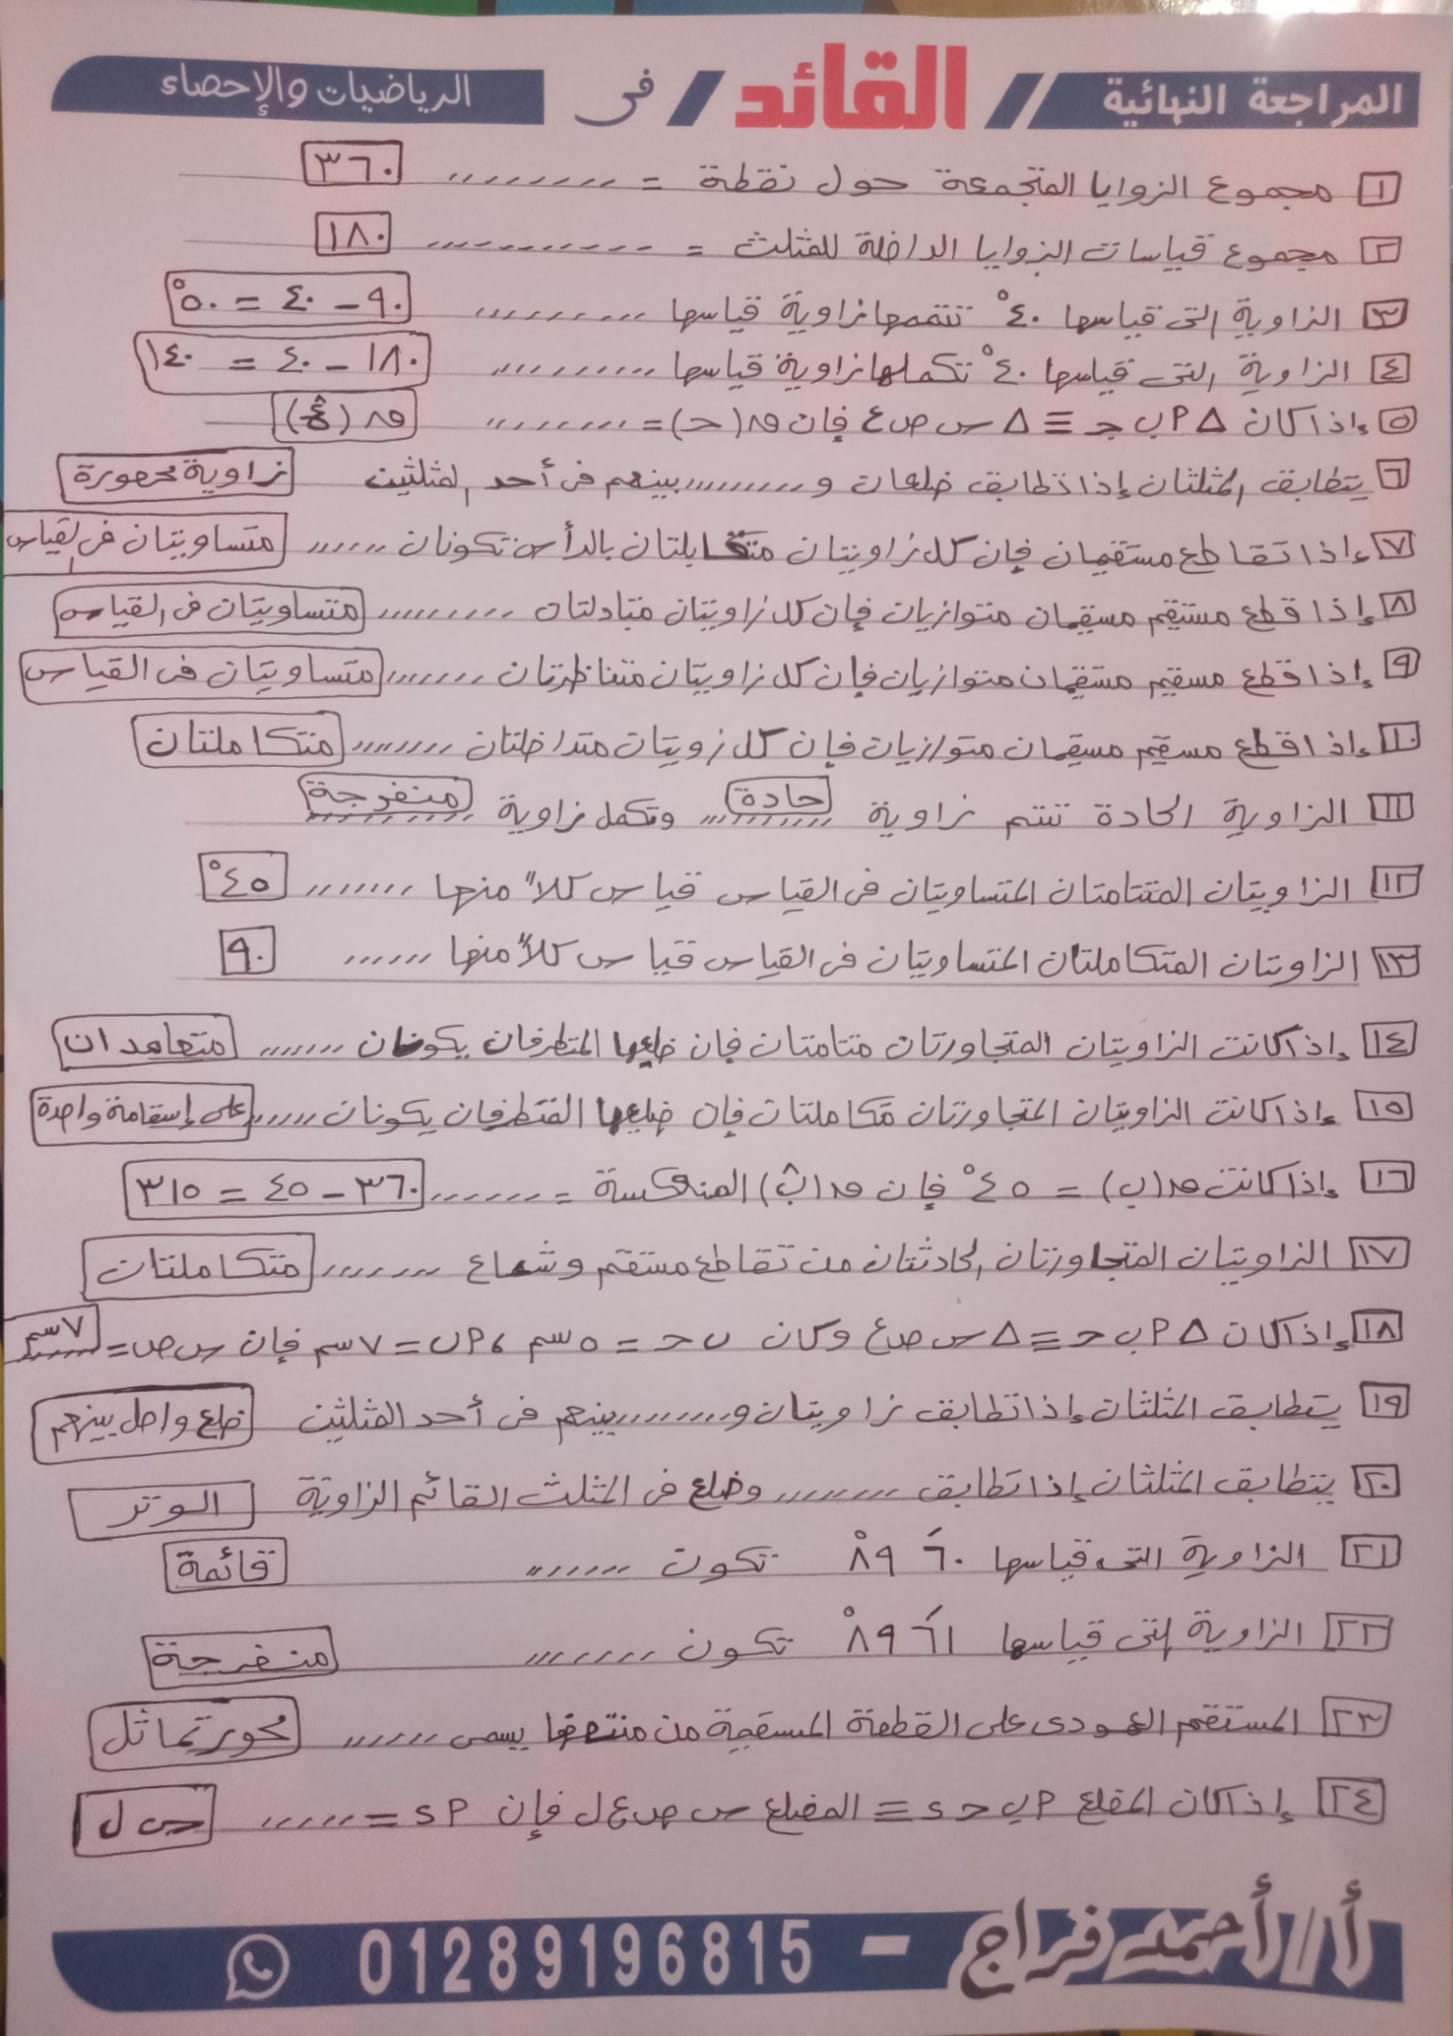 المراجعة النهائية // القائد / فى الرياضيات والإحصاء
١ مجموع الزوايا المتجمعة حول نقطة = ........ ٣٦٠
٢ مجموع قياسات الزوايا الداخلة للمثلث = ........ ١٨٠
٣ الزاوية التى قياسها ٤٠° تتممها زاوية قياسها ........ ٩٠ - ٤٠ = ٥٠°
٤ الزاوية التى قياسها ٤٠° تكملها زاوية قياسها ........ ١٨٠ - ٤٠ = ١٤٠
٥ إذا كان △ P ب ج ≡ △ س ص ع فإن ق(ج) = ........ ق(ع)
٦ يتطابق المثلثان إذا تطابق ضلعان و ........ بينهم فى أحد المثلثين زاوية محصورة
٧ إذا تقاطع مستقيمان فإن كل زاويتان متقابلتان بالرأس تكونان ...... متساويتان فى القياس
٨ إذا قطع مستقيم مسقيمان متوازيان فإن كل زاويتان متبادلتان ........ متساويتان فى القياس
٩ إذا قطع مسقيم مستقيمان متوازيان فإن كل زاويتان متناظرتان ....... متساويتان فى القياس
١٠ إذا قطع مسقيم مسقيمان متوازيان فإن كل زويتان متداخلتان ........ متكاملتان
١١ الزاوية الحادة تتتم زاوية حادة ........ وتكمل زاوية منفرجة ........
١٢ الزاويتان المتتامتان المتساويتان فى القياس قياس كلاً منها ....... ٤٥°
١٣ الزاويتان المتكاملتان المتساويتان فى القياس قياس كلاً منها ...... ٩٠
١٤ إذا كانت الزاويتان المتجاورتان متتامتان فإن ضلعها المتطرفان يكونان ....... متعامدان
١٥ إذا كانت الزاويتان المتجاورتان متكاملتان فإن ضلعها المتطرفان يكونان ...... على إستقامة واحدة
١٦ إذا كانت ق(ب) = ٤٥° فإن ق(ب) المنعكسة = ....... ٣٦٠ - ٤٥ = ٣١٥
١٧ الزاويتان المتجاورتان الحادثتان من تقاطع مستقيم وشعاع ....... متكاملتان
١٨ إذا كان △ P ب ح ≡ △ س ص ع وكان ب ح = ٥ سم ، P ب = ٧ سم فإن س ص = ٧ سم
١٩ يتطابق المثلثان إذا تطابق زاويتان و ........ بينهم فى أحد المثلثين ضلع واصل بينهم
٢٠ يتطابق المثلثان إذا تطابق ........ وضلع فى المثلث القائم الزاوية الوتر
٢١ الزاوية التى قياسها ٦٠َ ٨٩° تكون ...... قائمة
٢٢ الزاوية التى قياسها ٦١َ ٨٩° تكون ....... منفرجة
٢٣ المستقيم العمودى على القطعة المسقيمة من منتصفها يسمى ...... محور تماثل
٢٤ إذا كان المضلع P ب ح د ≡ المضلع س ص ع ل فإن P د = ...... س ل
أ/ أحمد فراج - 01289196815